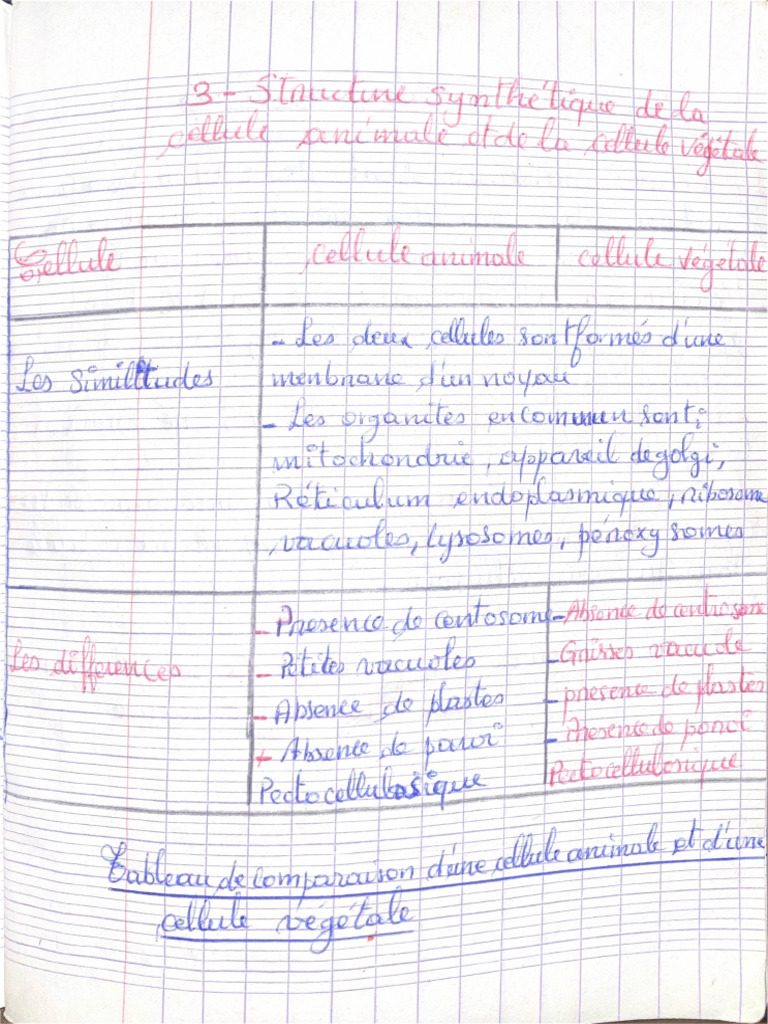 3 - Structure synthétique de la
cellule animale et de la cellule végétale
Cellule
cellule animale
cellule végétale
Les Similitudes
- Les deux cellules sont formés d'une
menbrane d'un noyau
- Les organites en commun sont:
mitochondrie, appareil de golgi,
Réticulum endoplasmique, ribosome
vacuoles, lysosomes, péroxysomes
Les differences
- Presence de centosome
- Petites vacuoles
- Absence de plastes
+ Absence de paroi
Pectocellulosique
- Absence de centrosome
- Grosses vacuole
- presence de plastes
- Presence de paroi
Pectocellulosique
Tableau de comparaison d'une cellule animale et d'une
cellule végétale